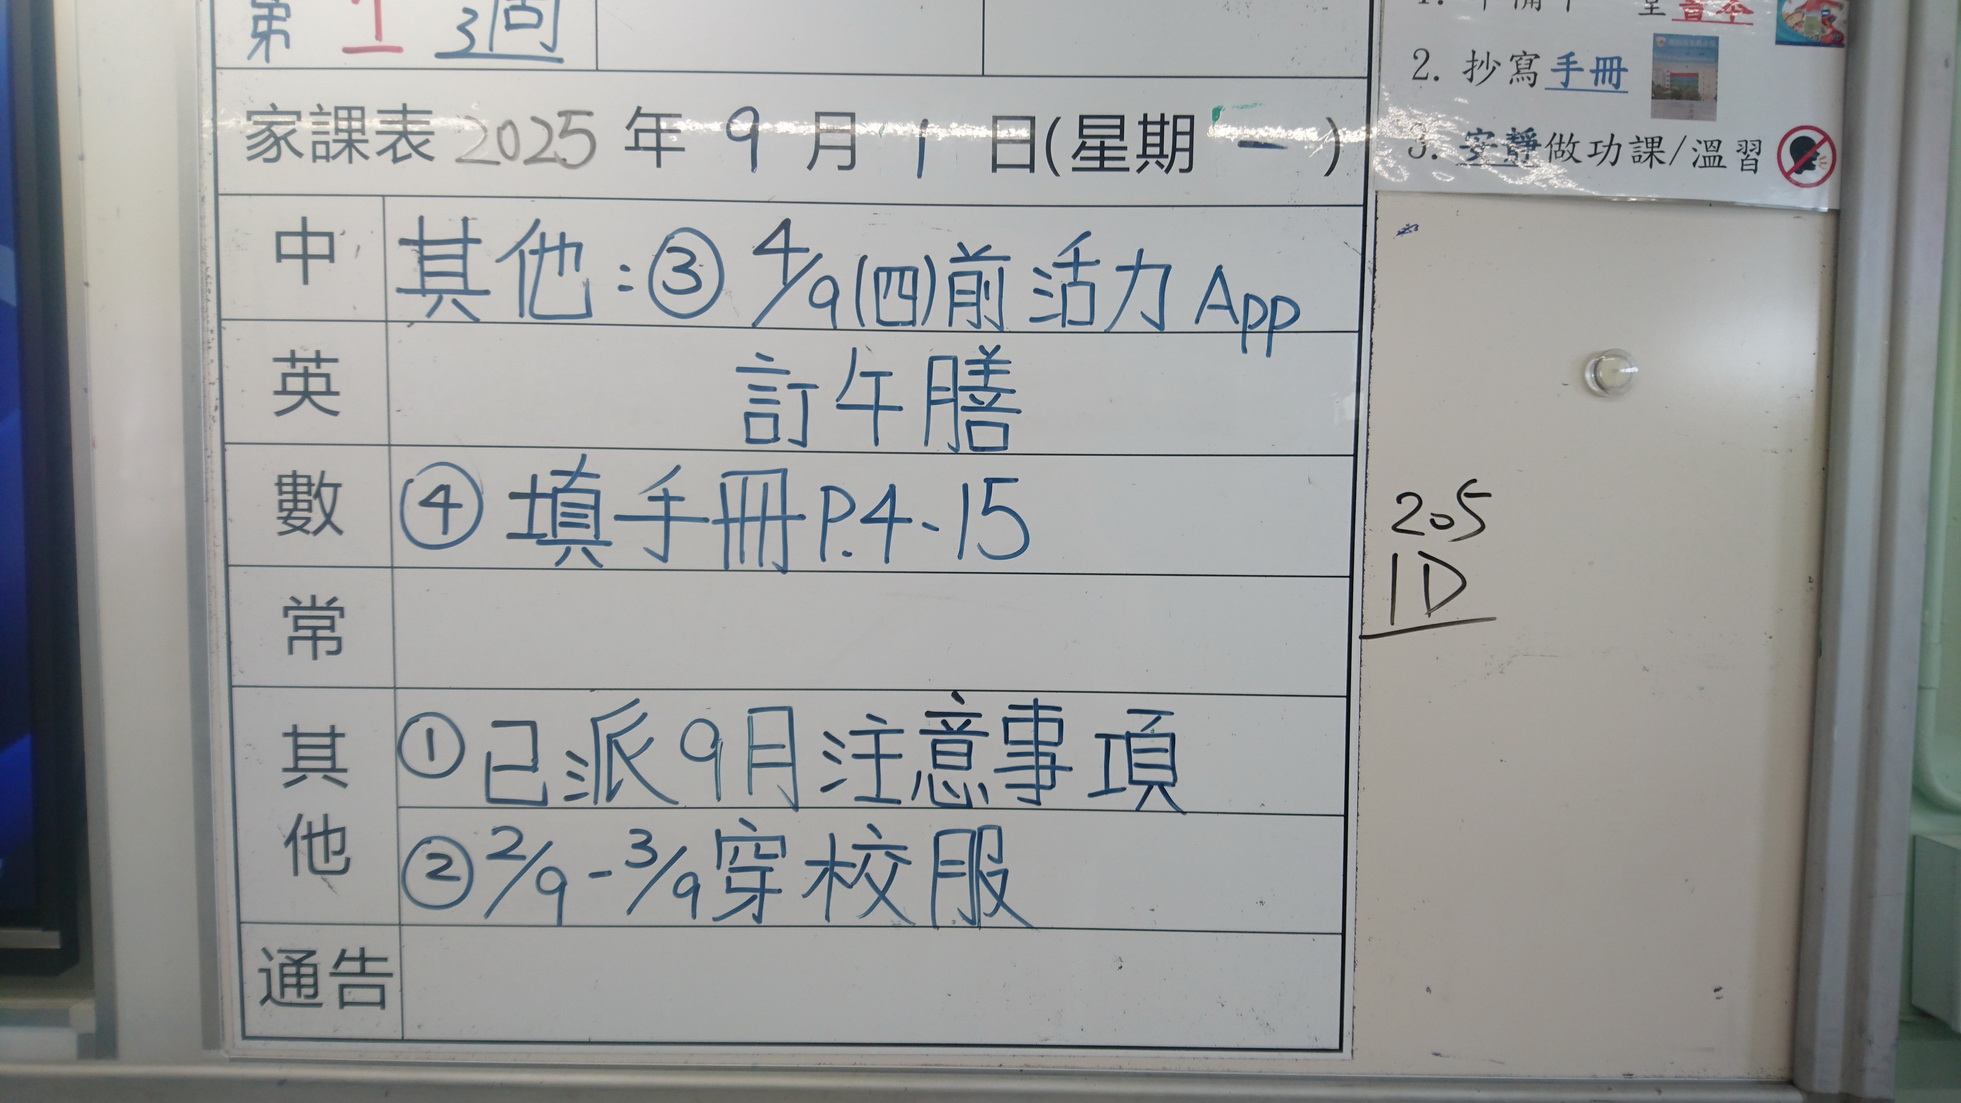 第 1 3週
家課表 2025 年 9 月 1 日(星期 一 )
中 其他：③ 4/9(四)前活力App
英 訂午膳
數 ④ 填手冊P.4-15
常
其他 ① 已派9月注意事項
② 2/9-3/9穿校服
通告
2. 抄寫手冊
3. 安靜做功課/溫習
205
1D